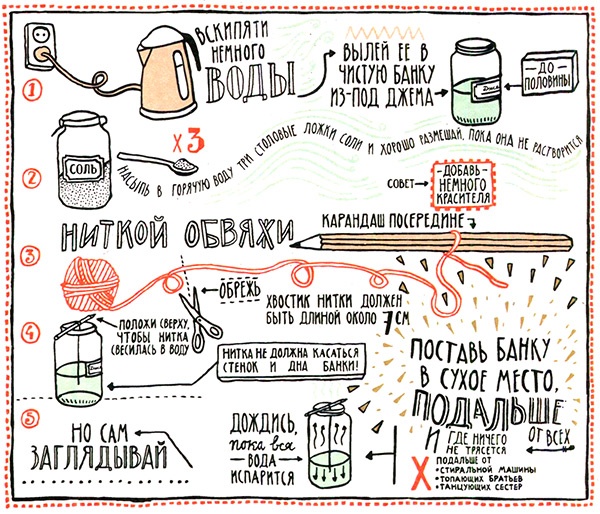 1
ВСКИПЯТИ
НЕМНОГО
ВОДЫ
ВЫЛЕЙ ЕЕ В
ЧИСТУЮ БАНКУ
ИЗ-ПОД ДЖЕМА
Джем
-ДО-
ПОЛОВИНЫ
2
СОЛЬ
X3
НАСЫПЬ В ГОРЯЧУЮ ВОДУ ТРИ СТОЛОВЫЕ ЛОЖКИ СОЛИ И ХОРОШО РАЗМЕШАЙ, ПОКА ОНА НЕ РАСТВОРИТСЯ
СОВЕТ
-ДОБАВЬ-
НЕМНОГО
КРАСИТЕЛЯ
3
НИТКОЙ ОБВЯЖИ
КАРАНДАШ ПОСЕРЕДИНЕ
ОБРЕЖЬ
ХВОСТИК НИТКИ ДОЛЖЕН
БЫТЬ ДЛИНОЙ ОКОЛО 7 СМ
4
ПОЛОЖИ СВЕРХУ,
ЧТОБЫ НИТКА
СВЕСИЛАСЬ В ВОДУ
НИТКА НЕ ДОЛЖНА КАСАТЬСЯ
СТЕНОК И ДНА БАНКИ!
5
ПОСТАВЬ БАНКУ
В СУХОЕ МЕСТО,
ПОДАЛЬШЕ
ОТ ВСЕХ
И ГДЕ НИЧЕГО
НЕ ТРЯСЕТСЯ
X ПОДАЛЬШЕ ОТ
•СТИРАЛЬНОЙ МАШИНЫ
•ТОПАЮЩИХ БРАТЬЕВ
•ТАНЦУЮЩИХ СЕСТЕР
ДОЖДИСЬ,
пока вся
ВОДА
ИСПАРИТСЯ
НО САМ
ЗАГЛЯДЫВАЙ